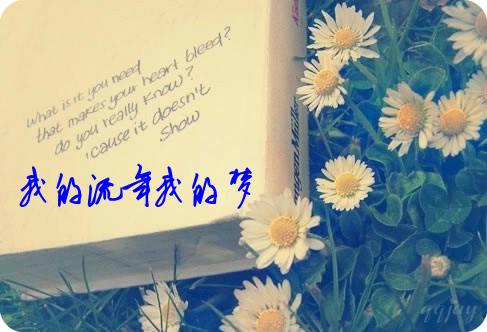 What is it you need
that makes your heart bleed?
do you really know?
'cause it doesn't
show
我的流年我的梦